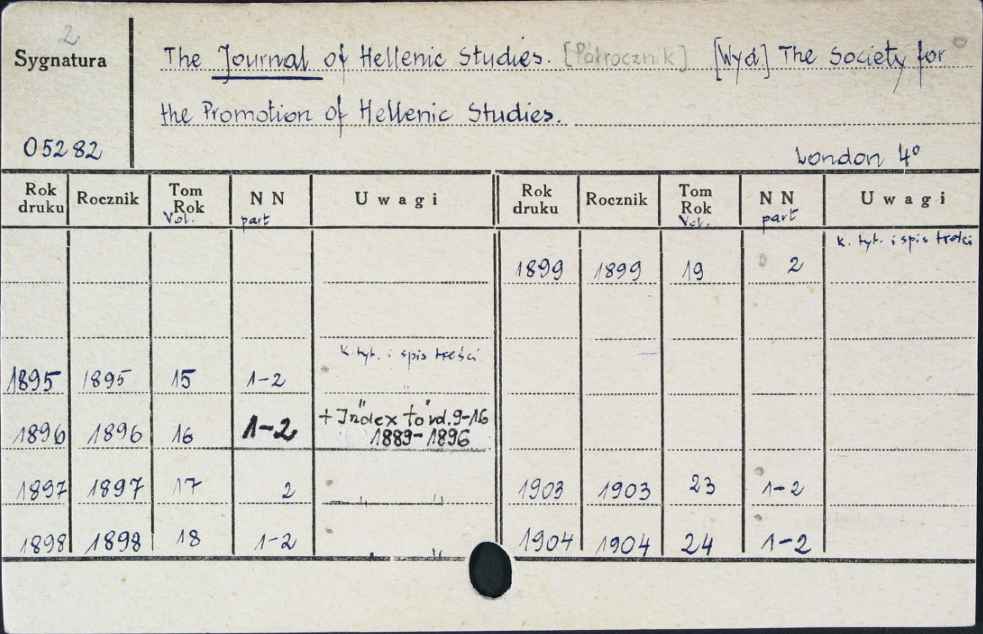 2
Sygnatura
The Journal of Hellenic Studies. [Półrocznik] [Wyd] The Society for
the Promotion of Hellenic Studies.
05282
London 4°
Rok druku Rocznik Tom Rok Vol. NN part Uwagi Rok druku Rocznik Tom Rok Vol. NN part Uwagi
k. tyt. i spis treści
1899 1899 19 2
k. tyt. i spis treści
1895 1895 15 1-2
1896 1896 16 1-2 + Index to vol. 9-16
1889-1896
1897 1897 17 2 " " 1903 1903 23 1-2
1898 1898 18 1-2 " " 1904 1904 24 1-2